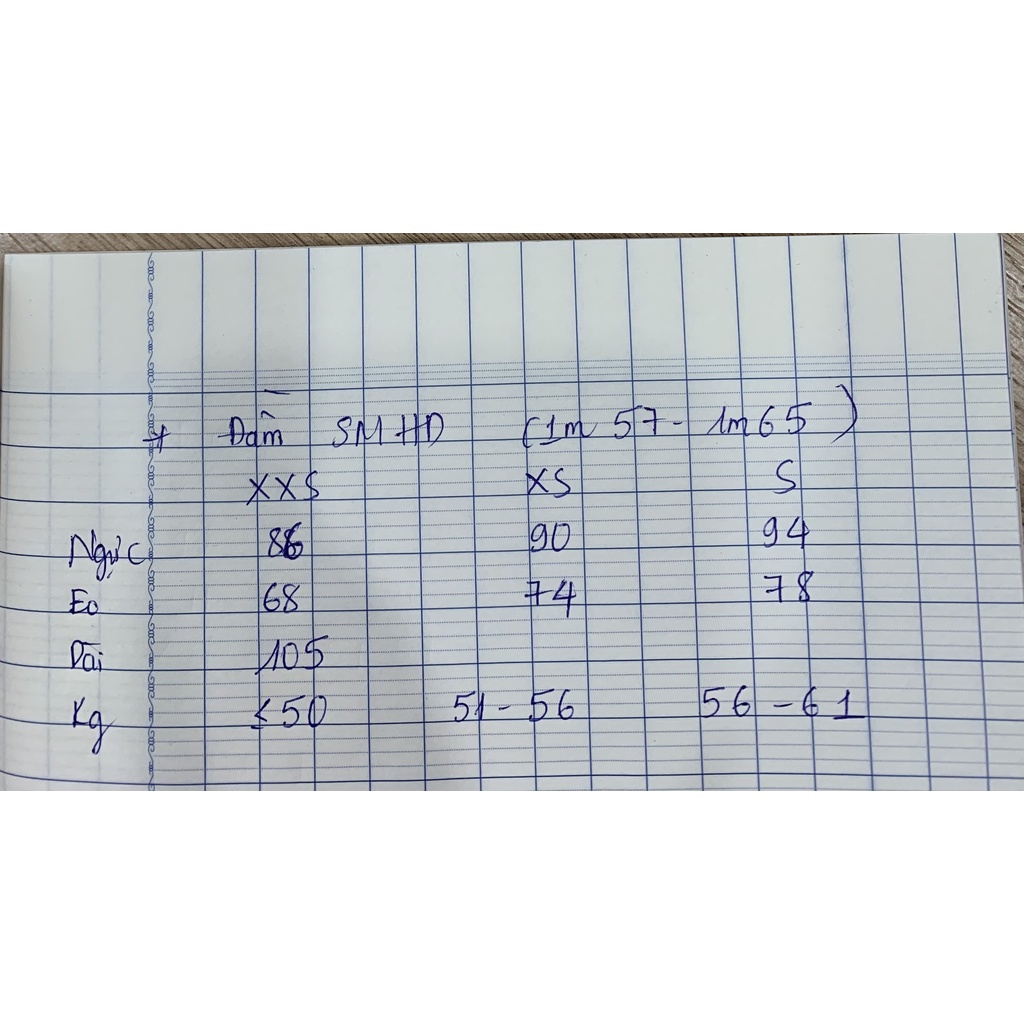 + Đầm SM HD (1m 57 - 1m65)
XXS XS S
Ngực 86 90 94
Eo 68 74 78
Dài 105
Kg ≤50 51 - 56 56 - 61